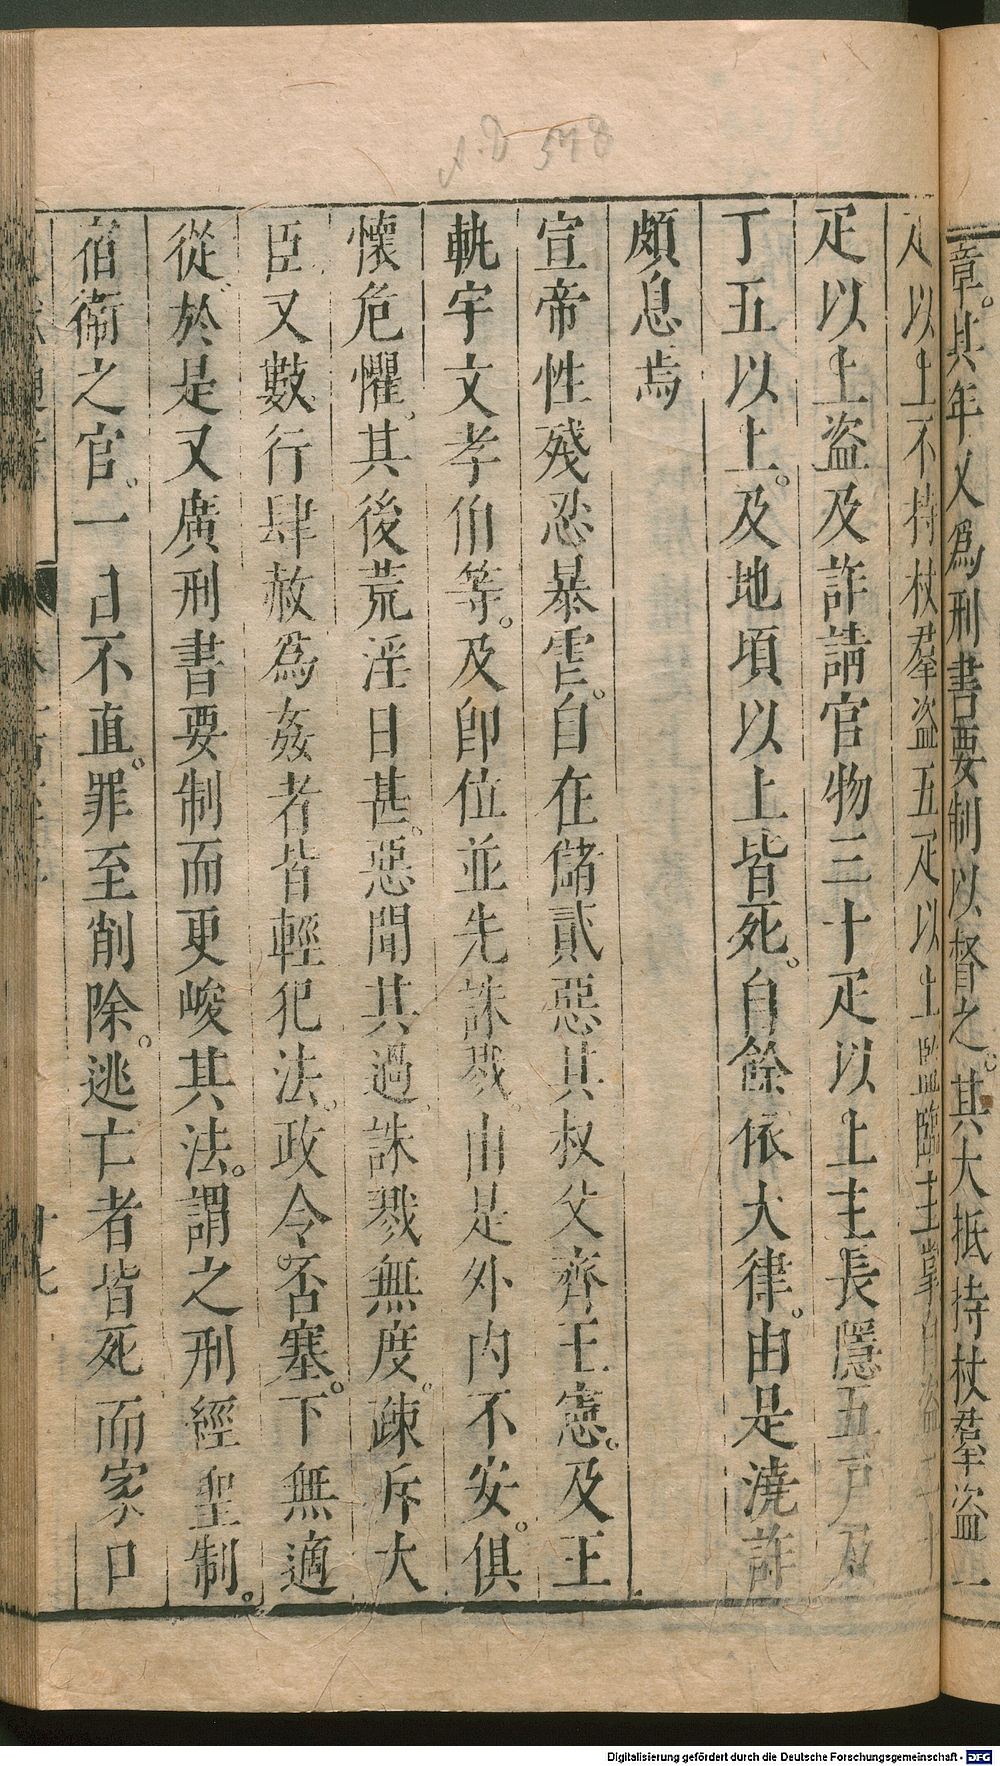 A.D 578
章。其年又爲刑書要制以督之。其大抵持杖羣盜一
疋以上不持杖羣盜五疋以上監臨主掌自盜二十
疋以上盜及詐請官物三十疋以上主長隱五戶及
丁五以上。及地頃以上皆死。自餘依大律。由是澆詐
頗息焉
宣帝性殘忍暴虐。自在儲貳惡其叔父齊王憲。及王
軌宇文孝伯等。及卽位並先誅戮。由是外內不安。俱
懷危懼。其後荒淫日甚。惡聞其過。誅戮無度。疎斥大
臣又數行肆赦爲姦者皆輕犯法。政令否塞。下無適
從。於是又廣刑書要制而更峻其法。謂之刑經聖制。
宿衞之官。一日不直。罪至削除。逃亡者皆死而家口
Digitalisierung gefördert durch die Deutsche Forschungsgemeinschaft - DFG